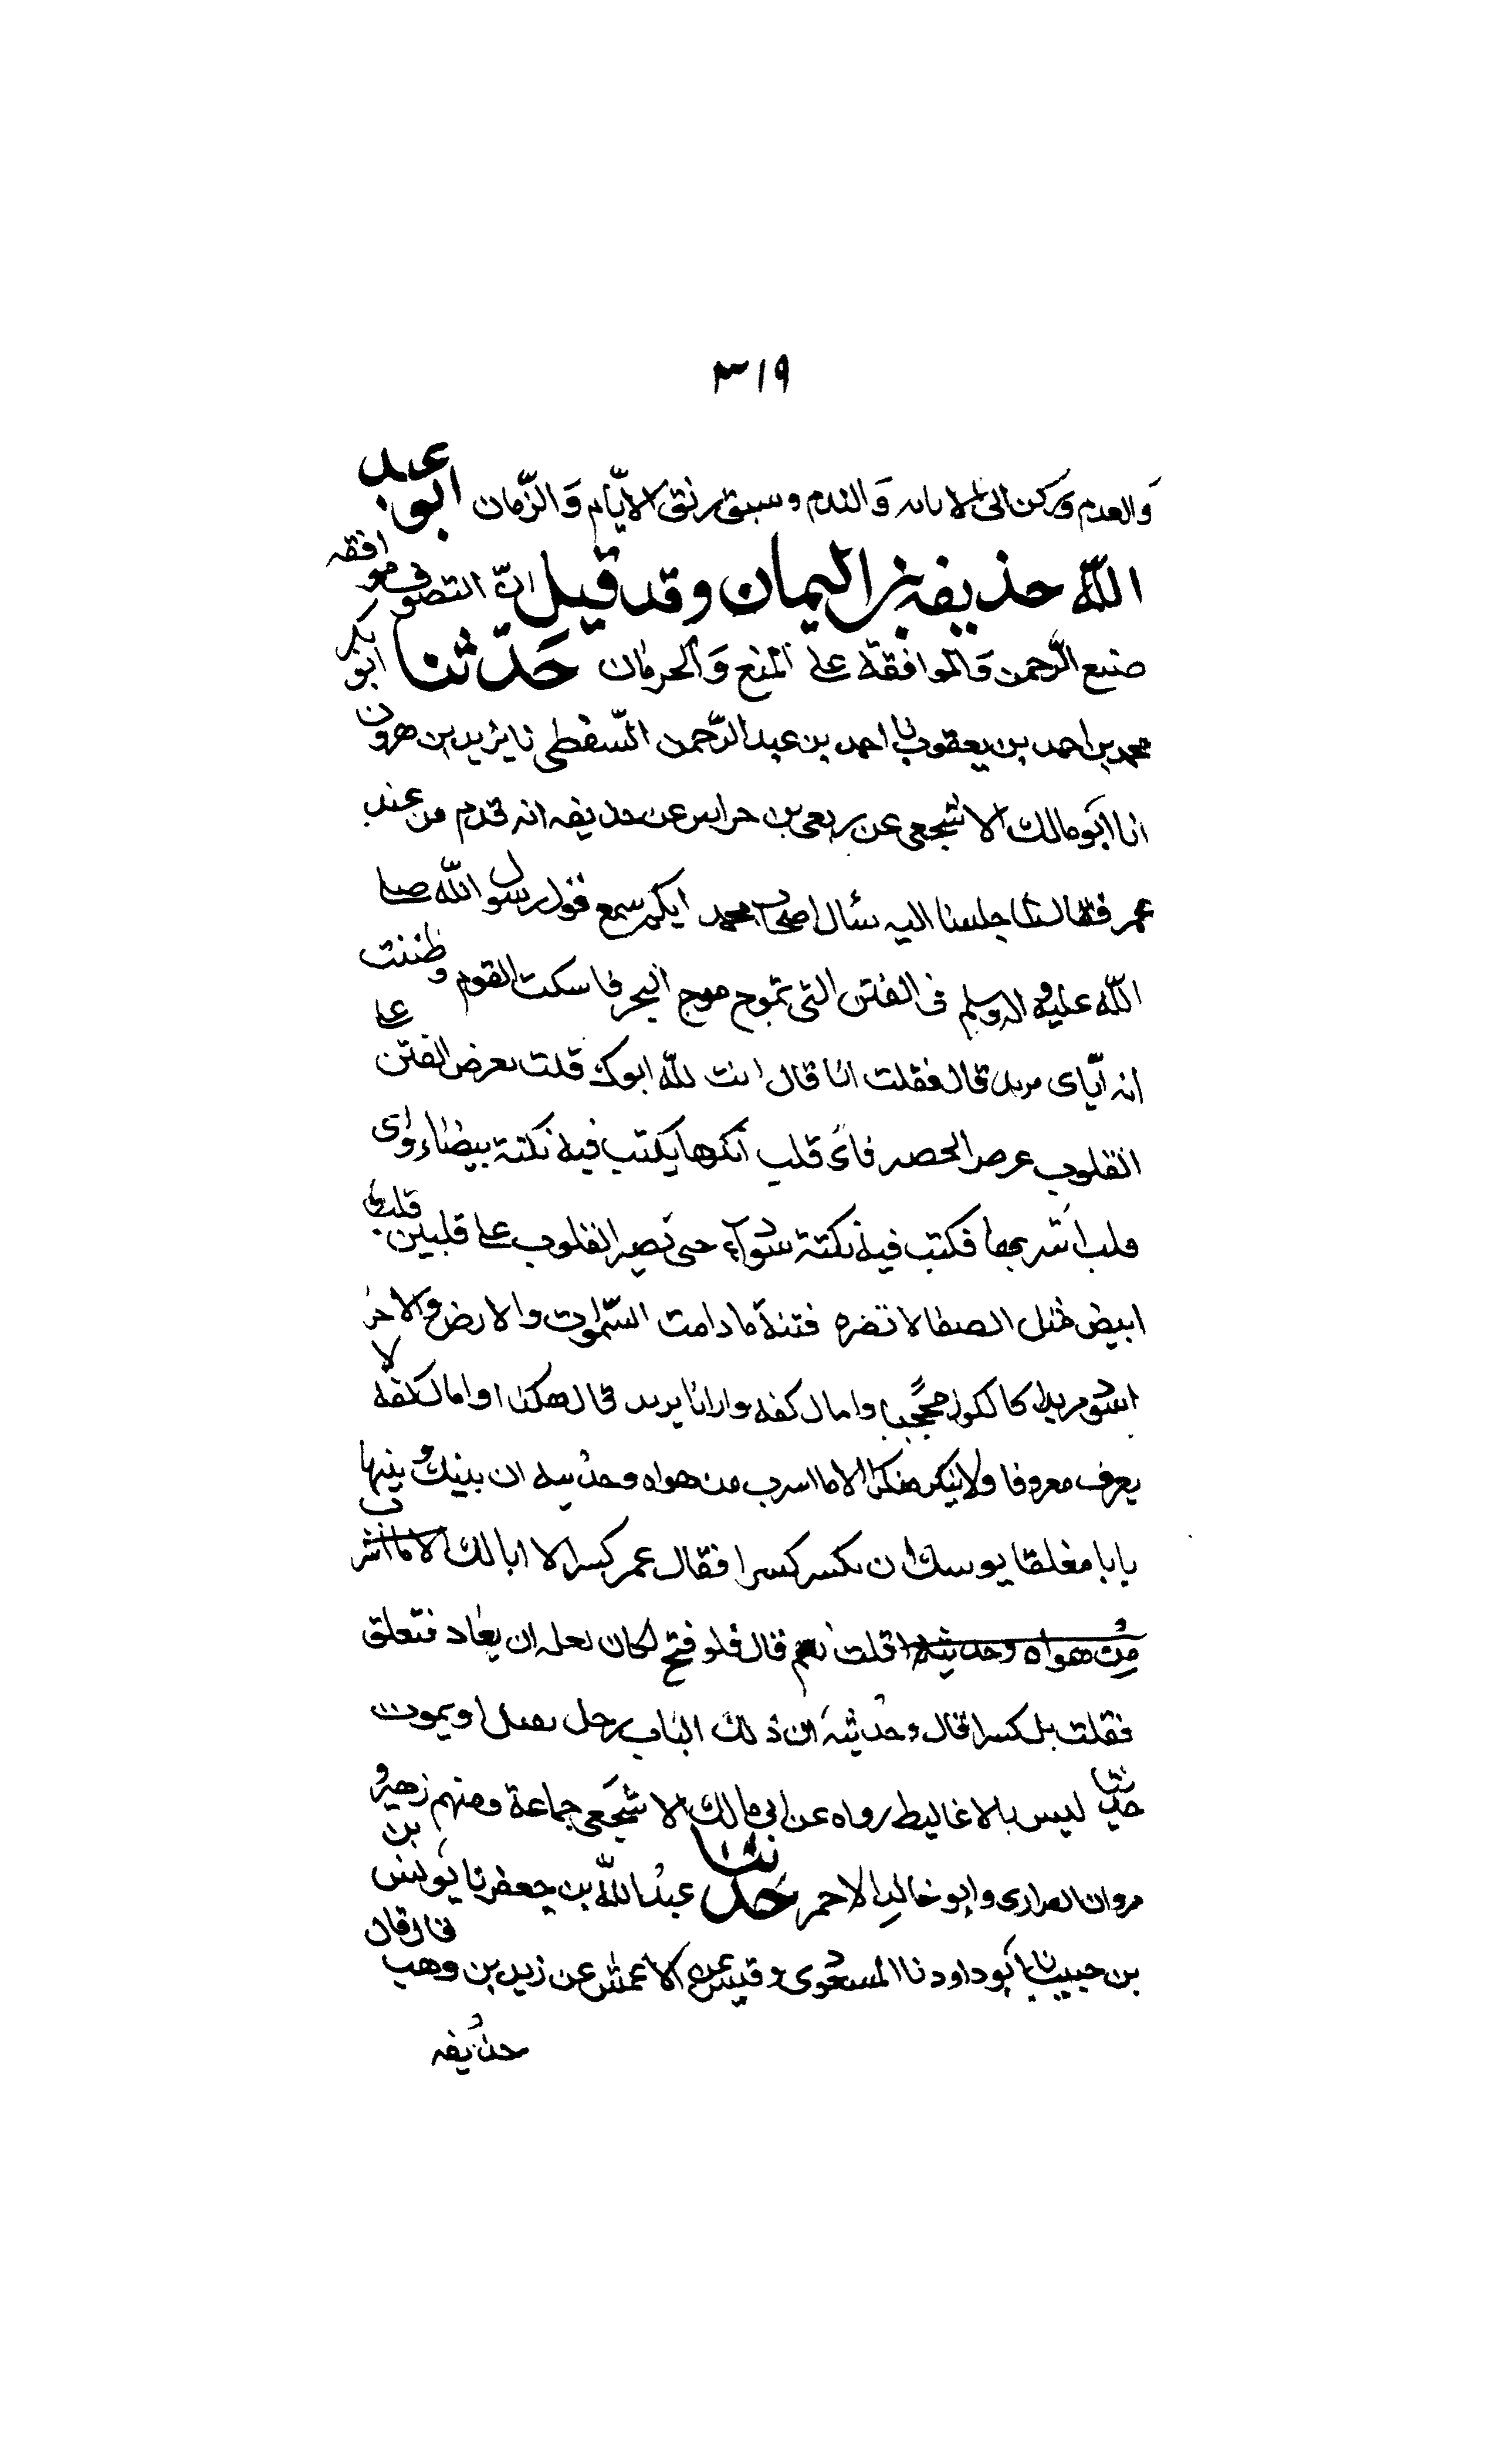 ٣١٩
والعدم وركن الى الانابه والندم وسبق رتق الايّام والزّمان ابو عبد
اللّه حذيفه بن اليمان وقد قيل انّ التصوف موافقه
صنيع الرّحمن والموافقة على المنع والحرمان حَدّثنا ابو بكر
محمد بن احمد بن يعقوب نا احمد بن عبد الرّحمن السّفطى نا يزيد بن هرون
انا ابو مالك الاشجعى عن ربعى بن حراس عن حذيفه انه قدم من عند
عمر فقال لما جلسنا اليه سأل اصحاب محمد ايكم سمع قول رسول اللّه صلى
اللّه عليه واله وسلم فى الفتن التى تموج موج البحر فاسكت القوم وظننت
انه ايّاى يريد قال فقلت انا قال انت للّه ابوك قلت تعرض الفتن على
القلوب عرض الحصير فاى قلب انكرها يكتب فيه نكتة بيضاء واى
قلب اشربها فكتب فيه نكتة سودآء حتى تصير القلوب على قلبين قلب
ابيض مثل الصفا لا تضره فتنة ما دامت السّموات والارض والاخر
اسود مربدا كالكوز مججّبا وامال كفه وارانا يزيد قال هكذا وامال كفه لا
يعرف معروفا ولا ينكر منكرا الا ما اسرب من هواه وحدثيه ان بينك وبينها
بابا مغلقا يوسك ان يكسر كسرا فقال عمر كسرا لا ابا لك الا ما اشرب
من هواه وحدثيه قلت نعم قال فلو فتح لكان لعله ان يعاد فتعلق
فقلت بل كسرا قال وحدثيه ان ذلك الباب رجل يقتل او يموت
حديثا ليس بالاغاليط رواه عن ابى مالك الاشجعى جماعة ومنهم زهير و
مروان الفزارى وابو خالد الاحمر حدثنا عبد اللّه بن جعفر نا يونس بن
بن حبيب نا ابو داود نا المسعودى وقيس عن الاعمش عن زيد بن وهب قال قال
حذيفه